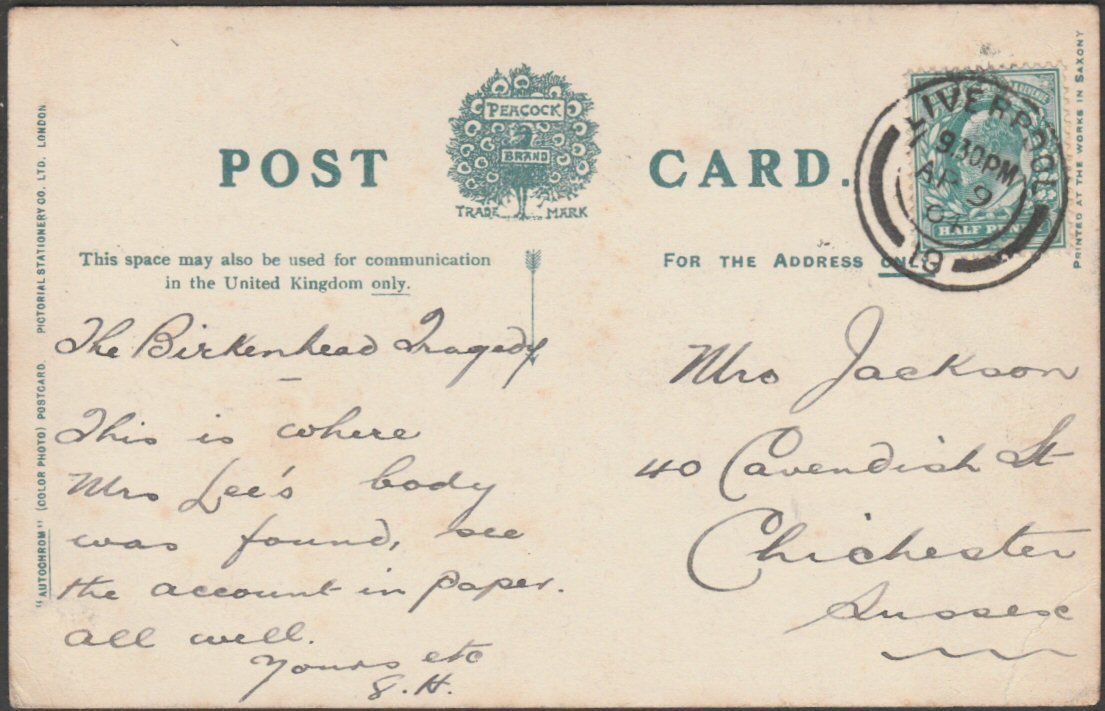 POST CARD.
PEACOCK
BRAND
TRADE MARK
This space may also be used for communication
in the United Kingdom only.
FOR THE ADDRESS ONLY
The Birkenhead Tragedy
This is where
Mrs Lee's body
was found, see
the account in paper.
all well.
Yours etc
S.H.
Mrs Jackson
40 Cavendish St
Chichester
Sussex
LIVERPOOL
9.30PM
AP 9
HALF PENNY
PRINTED AT THE WORKS IN SAXONY
"AUTOCHROM" (COLOR PHOTO) POSTCARD. PICTORIAL STATIONERY CO. LTD. LONDON.